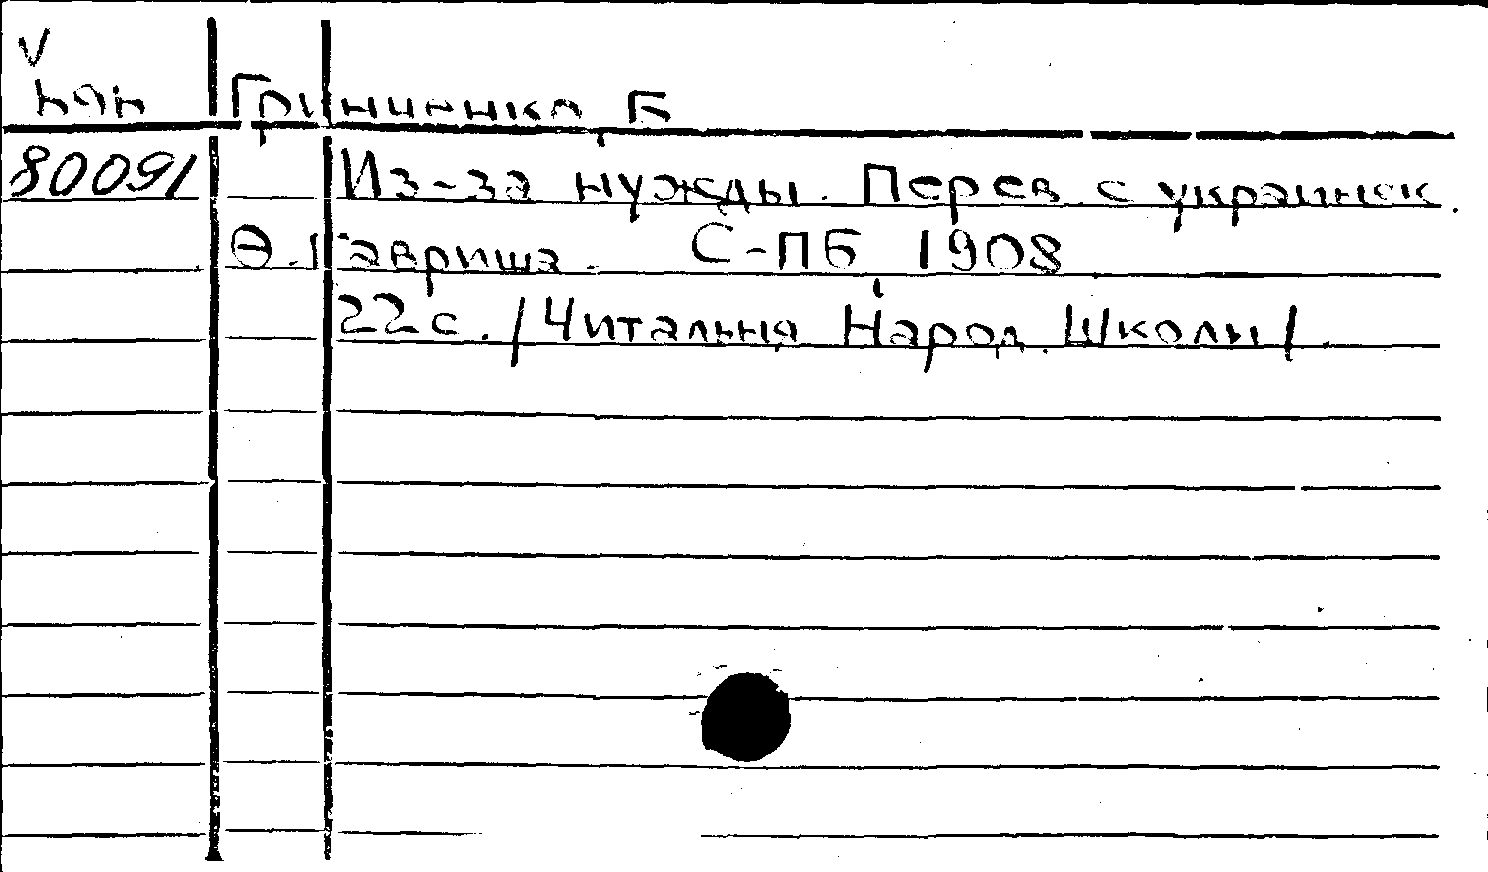 V
Гринченко, Б
80091 Из-за нужды. Перев. с украинск.
Ѳ. Гавриша. С-ПБ, 1908
22 с. /Читальня Народ. Школы/.